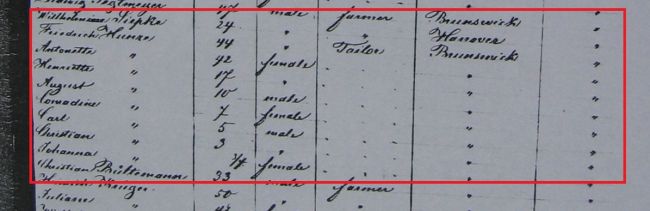 47 male farmer Brunswick "
Wilhelmine Siepke 24 " " Hanover "
Friedrich Hunze 44 " Tailor Brunswick "
Antonette " 42 female . . " "
Henriette " 17 " . . " "
August " 10 male . . " "
Conradine " 7 female . . " "
Carl " 5 male . . " "
Christian " 3 " . . " "
Johanna " female . . " "
Christian Bültemann 33 male farmer " "
Kruger 50 "
Juliane "